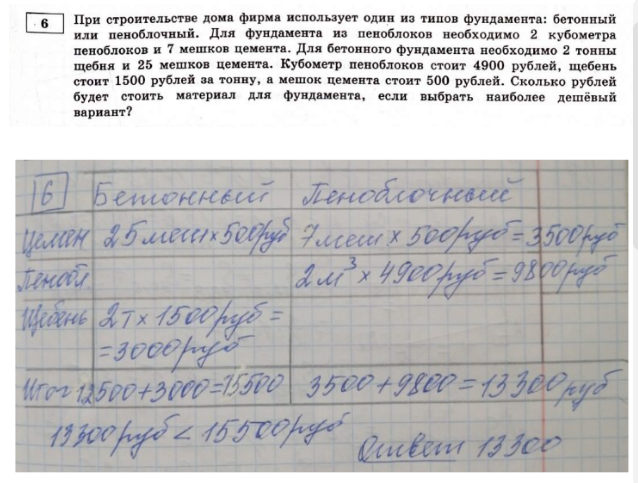 6
При строительстве дома фирма использует один из типов фундамента: бетонный
или пеноблочный. Для фундамента из пеноблоков необходимо 2 кубометра
пеноблоков и 7 мешков цемента. Для бетонного фундамента необходимо 2 тонны
щебня и 25 мешков цемента. Кубометр пеноблоков стоит 4900 рублей, щебень
стоит 1500 рублей за тонну, а мешок цемента стоит 500 рублей. Сколько рублей
будет стоить материал для фундамента, если выбрать наиболее дешёвый
вариант?
6 Бетонный Пеноблочный
Цемен 25меш×500руб 7меш × 500руб = 3500руб
Пенобл 2м³ × 4900руб = 9800руб
Щебень 2т × 1500руб =
= 3000руб
Итог 12500+3000=15500 3500 + 9800 = 13300руб
13300руб < 15500руб
Ответ 13300